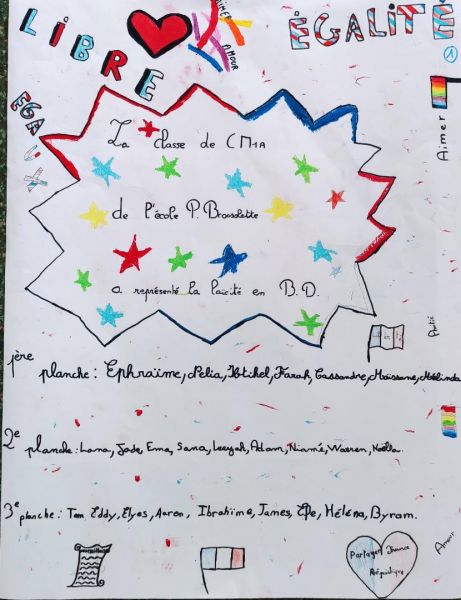 LIBRE
AIMER
AMOUR
ÉGALITÉ
1
EGA
Aimer
La classe de CM1A
de l'école P. Brossolette
a représenté la laïcité en B.D.
Amitié
1ère planche : Ephraïme, Célia, Ibtihel, Farah, Cassandre, Maïssane, Mélinda
2e planche : Lana, Jade, Ema, Sana, Leeyah, Adam, Niamé, Warren, Noëlla.
3e planche : Tom Eddy, Elyes, Aaron, Ibrahima, James, Héléna, Byram.
Partager France
République
Amour